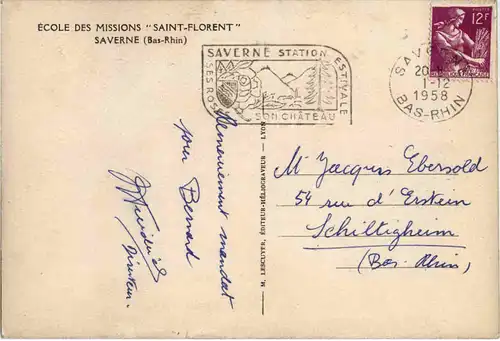 ÉCOLE DES MISSIONS "SAINT-FLORENT"
SAVERNE (Bas-Rhin)
SAVERNE STATION ESTIVALE
SES ROSES
SON CHÂTEAU
12F
20
1-12
1958
BAS-RHIN
Remerciement mandat
pour Bernard
Directeur.
M. LESCUYER, ÉDITEUR-HÉLIOGRAVEUR - LYON
Mr Jacques Ebersold
54 rue d'Erstein
Schiltigheim
(Bas-Rhin)